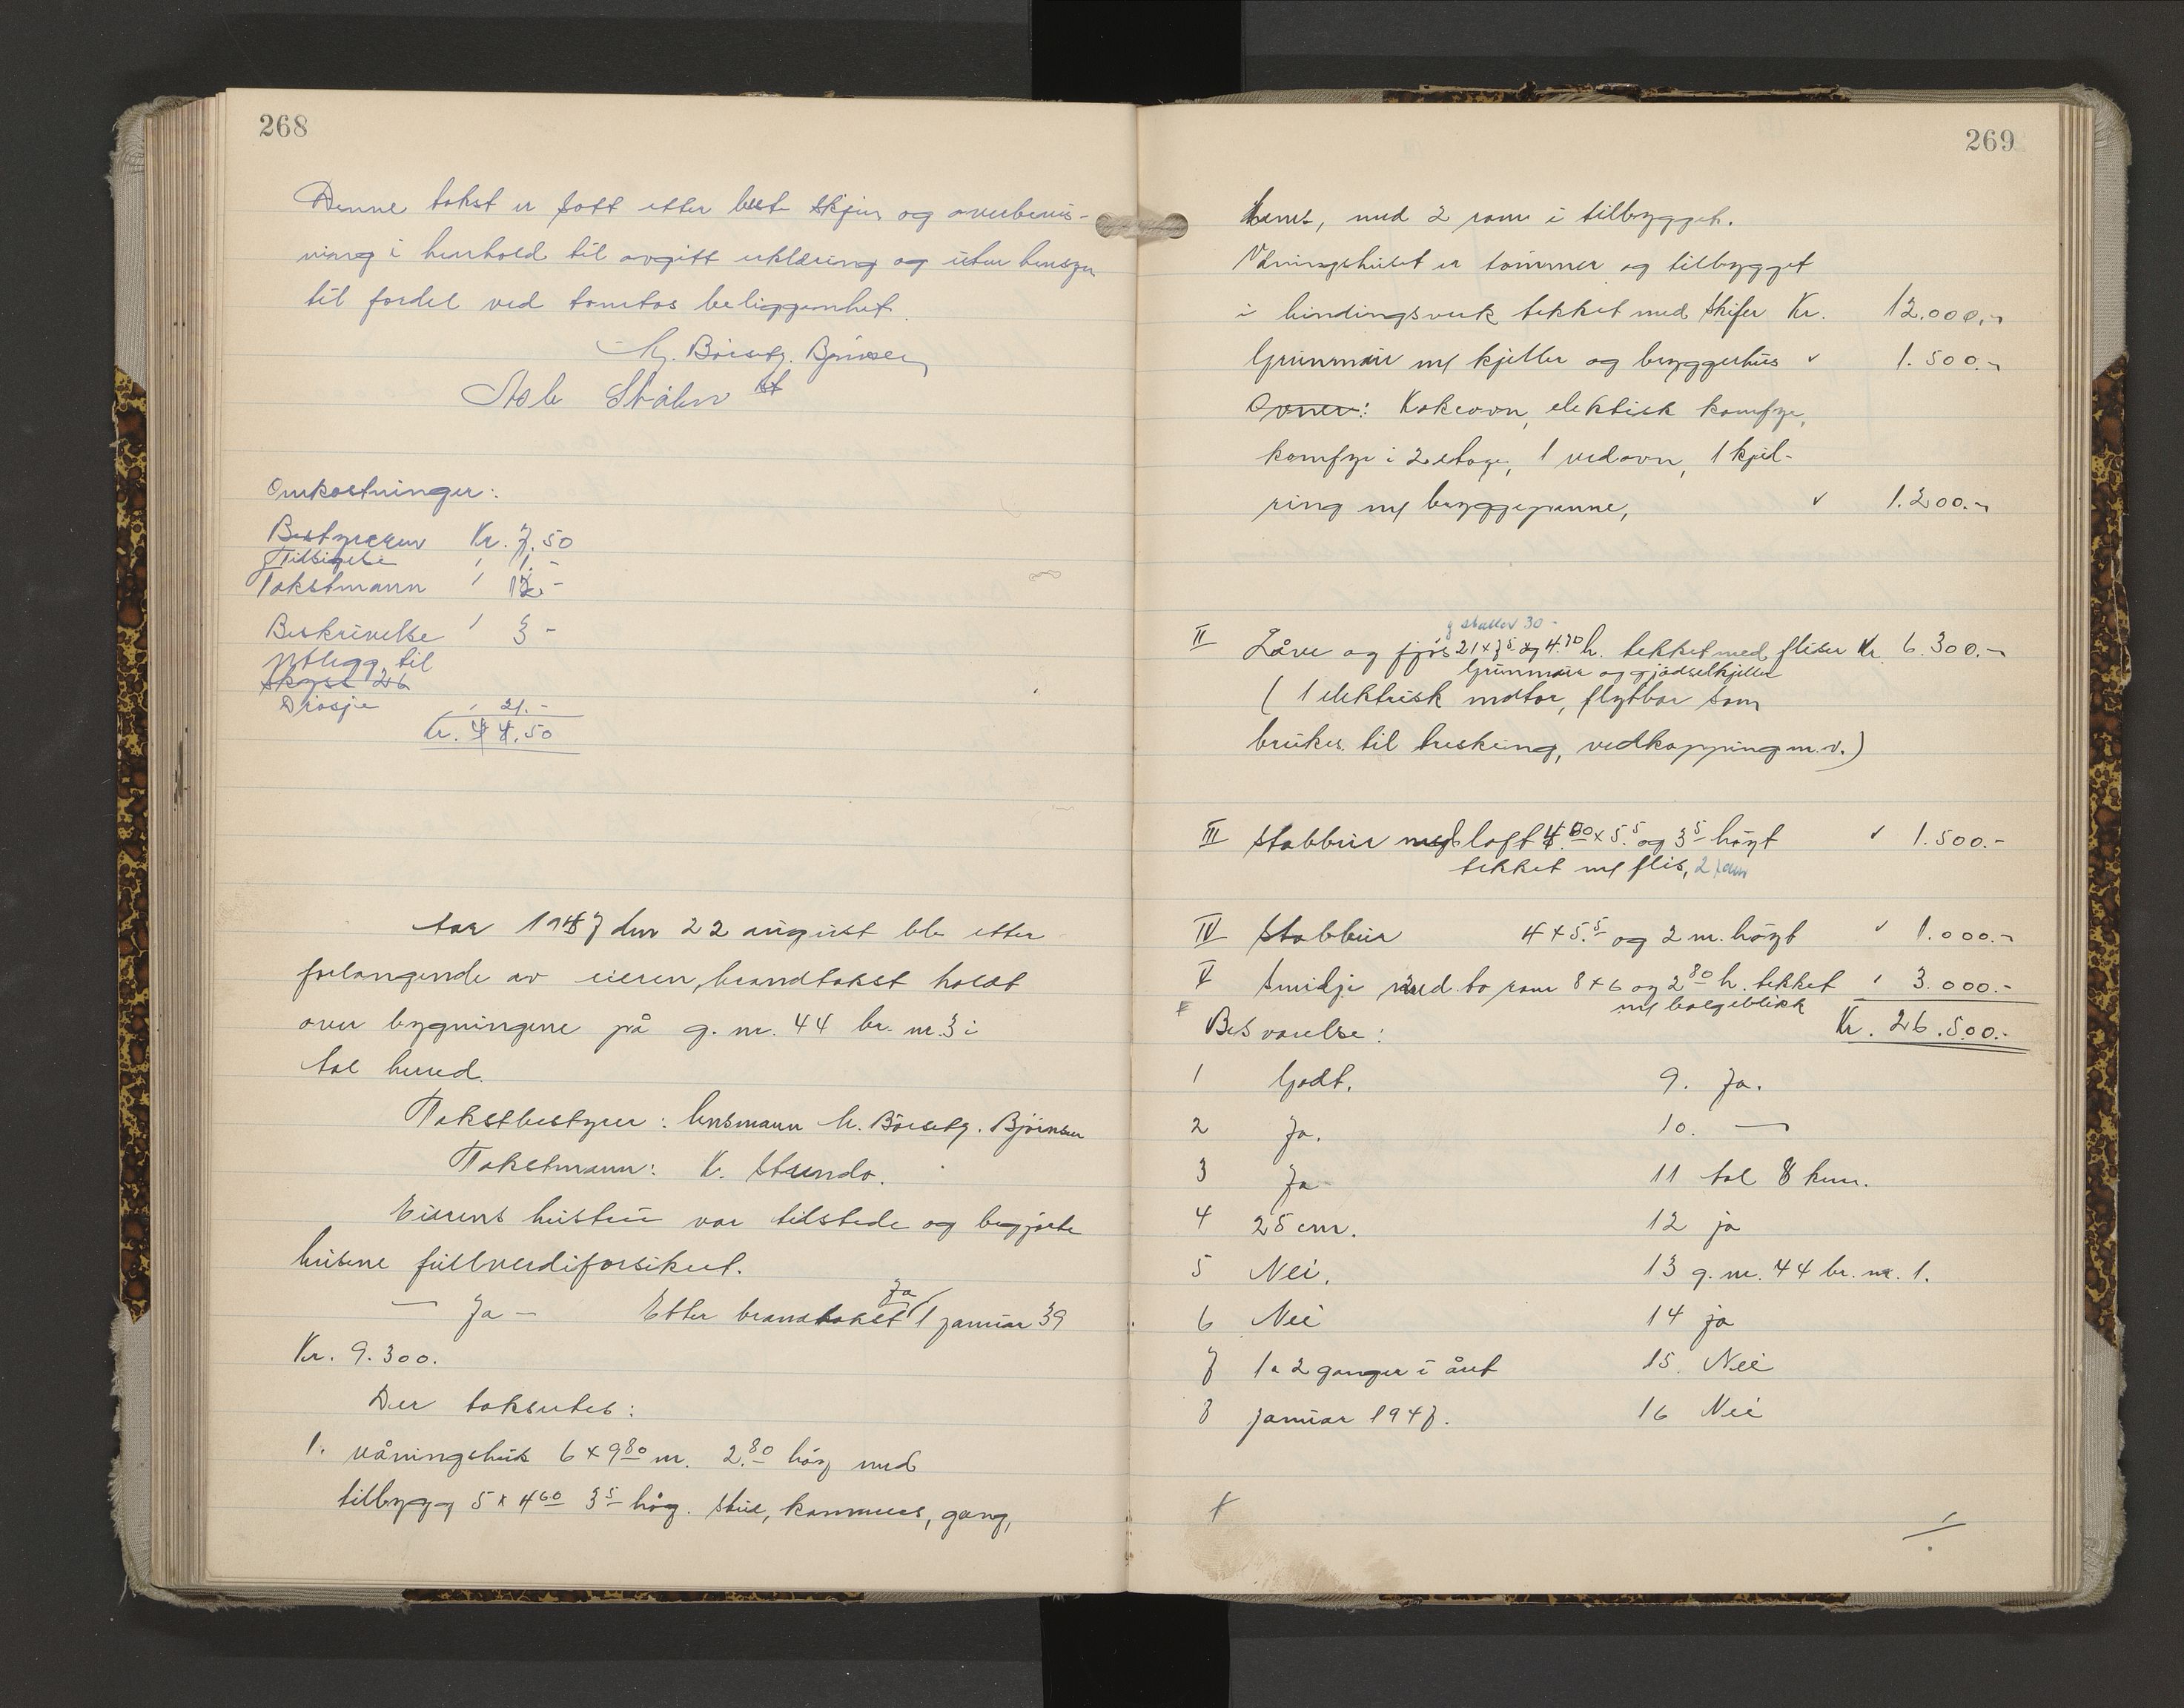 268
Denne takst er satt etter beste skjøn og overbevis-
ning i henhold til avgitt erklæring og uten hensyn
til fordel ved tomtas beliggenhet.
Børseth Bjørnsen
Asle Stråhn
Omkostninger:
Bestyreren Kr. 7.50
Tilsigelse " 1.-
Takstmann " 12.-
Beskrivelse " 3 -
Utlegg til
skyss 26
Drosje " 21.-
Kr. 44.50
Aar 1947 den 22 august ble etter
forlangende av eieren, brandtakst holdt
over bygningene på g. nr. 44 br. nr. 3 i
Aal herred.
Takstbestyrer: lensmann M. Børseth. Bjørnsen
Takstmann: K. Strando.
Eierens hustru var tilstede og begjærte
husene fullverdiforsikret.
— Ja — Etter brandtakst Ja 1 januar 39
Kr. 9.300.
Der takseres:
1. våningshus 6 x 9 80 m. 2.80 høg med
tilbygg 5 x 4 60 3 5 høg. Stue, kammers, gang,
269
med 2 rom i tilbygget.
Våningshuset er tømmer og tilbygget
i bindingsverk tekket med skifer Kr. 12.000,-
Grunnmur m/ kjeller og bryggerhus " 1.500.-
Ovner: Kakeovn, elektisk komfyr,
komfyr i 2 etage, 1 vedovn, 1 kjel-
ring m/ bryggepanne, " 1.200.-
g staller 30 -
II Låve og fjøs 21 x 7 5 og 4.70 h. tekket med fliser Kr. 6.300.-
Grunnmur og gjødselkjeller
( 1 elektrisk motor, flytbar som
brukes til tresking, vedkapping m.v.)
III Stabbur med loft 4.80 x 5.5 og 3 5 høgt " 1.500.-
tekket m/ flis, 2 rom
IV Stabbur 4 x 5.5 og 2 m. høgt " 1.000.-
V Smidje med to rom 8 x 6 og 2 80 h. tekket " 3.000.-
m/ bølgeblikk
Besvarelse: Kr. 26.500.-
1 Godt. 9. Ja.
2 Ja. 10. —
3 Ja 11 Aal 8 km.
4 25 cm. 12 ja
5 Nei. 13 g. nr. 44 br. nr. 1.
6 Nei 14 ja
7 1 a 2 ganger i året 15. Nei
8 januar 1947. 16 Nei